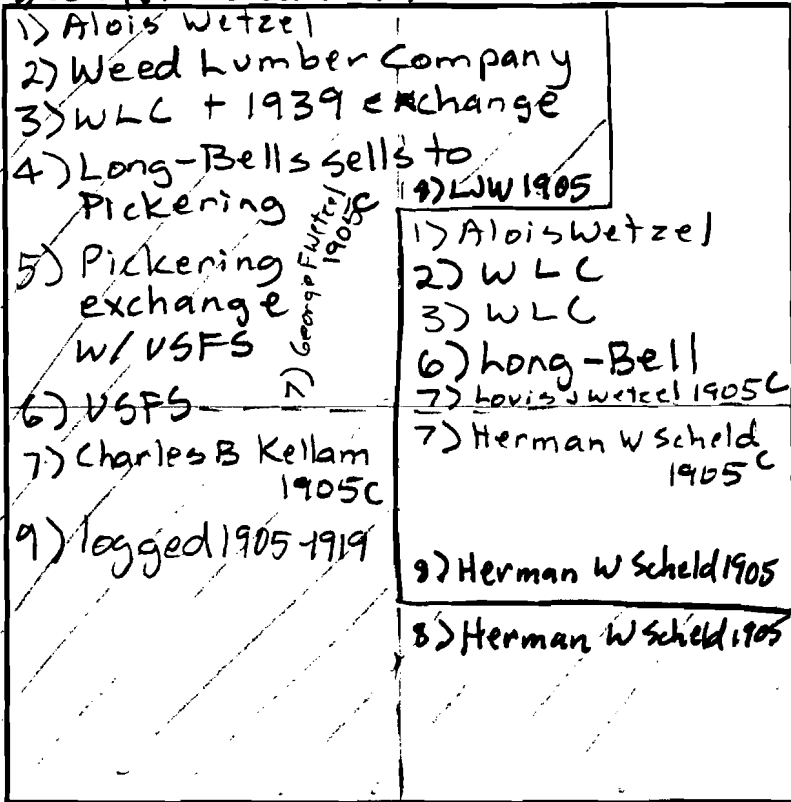 1) Alois Wetzel
2) Weed Lumber Company
3) WLC + 1939 exchange
4) Long-Bells sells to
Pickering
5) Pickering
exchange
w/ USFS
7) George F Wetzel
1905C
6) USFS
7) Charles B Kellam
1905C
9) logged 1905-1919
8) LJW 1905
1) Alois Wetzel
2) WLC
3) WLC
6) Long-Bell
7) Louis J Wetzel 1905C
7) Herman W Scheld
1905C
8) Herman W Scheld 1905
8) Herman W Scheld 1905